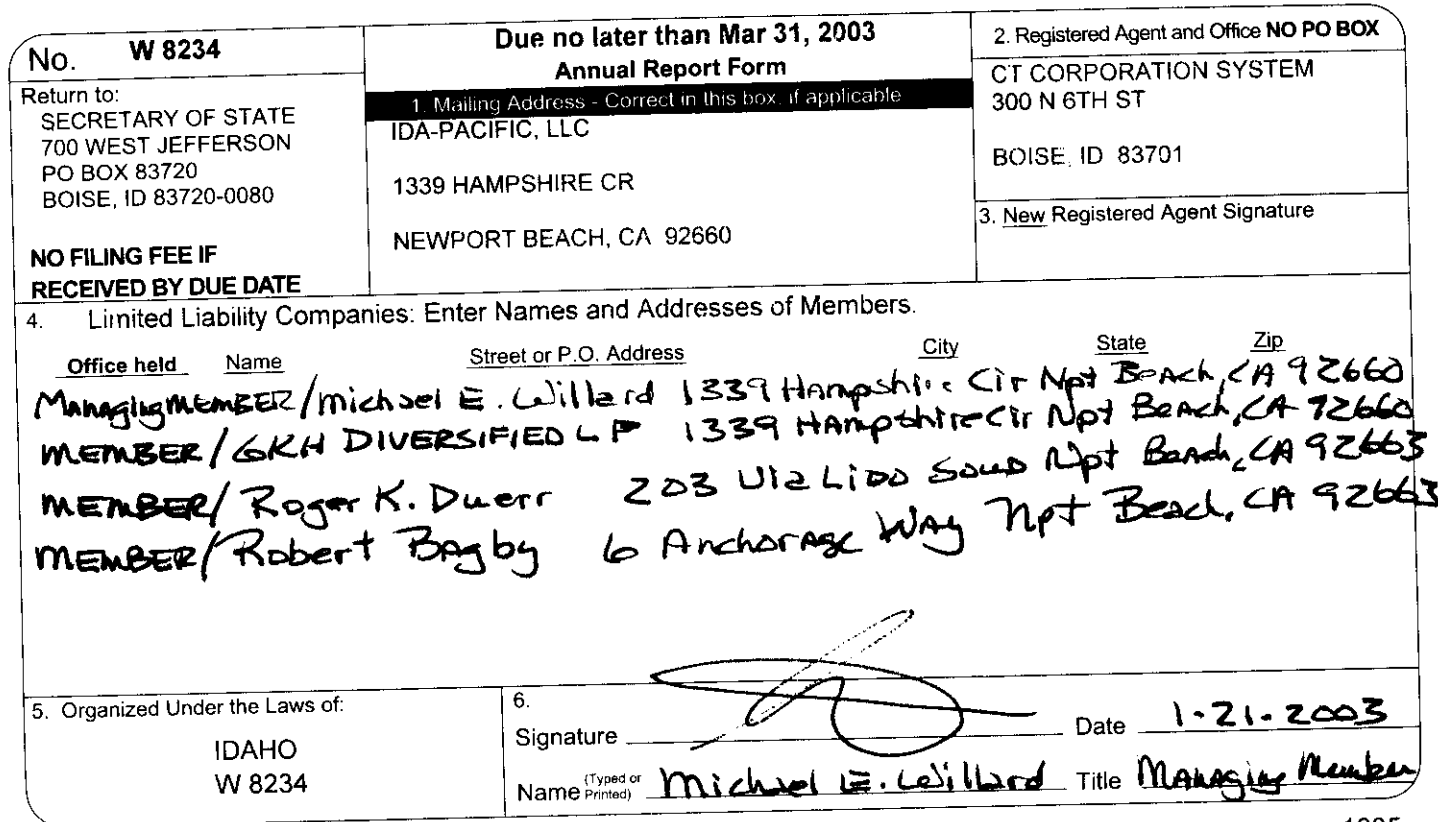 No. W 8234
Return to:
SECRETARY OF STATE
700 WEST JEFFERSON
PO BOX 83720
BOISE, ID 83720-0080
NO FILING FEE IF
RECEIVED BY DUE DATE
Due no later than Mar 31, 2003
Annual Report Form
1. Mailing Address - Correct in this box, if applicable
IDA-PACIFIC, LLC
1339 HAMPSHIRE CR
NEWPORT BEACH, CA 92660
2. Registered Agent and Office NO PO BOX
CT CORPORATION SYSTEM
300 N 6TH ST
BOISE, ID 83701
3. New Registered Agent Signature
4. Limited Liability Companies: Enter Names and Addresses of Members.
Office held Name Street or P.O. Address City State Zip
Managing MEMBER/Michael E. Willard 1339 Hampshire Cir Npt Beach, CA 92660
MEMBER/GKH DIVERSIFIED LP 1339 Hampshire Cir Npt Beach, CA 92660
MEMBER/Roger K. Duerr 203 Via Lido Soud Npt Beach, CA 92663
MEMBER/Robert Bagby 6 Anchorage Way Npt Beach, CA 92663
5. Organized Under the Laws of:
IDAHO
W 8234
6.
Signature Date 1-21-2003
Name (Typed or Printed) Michael E. Willard Title Managing Member